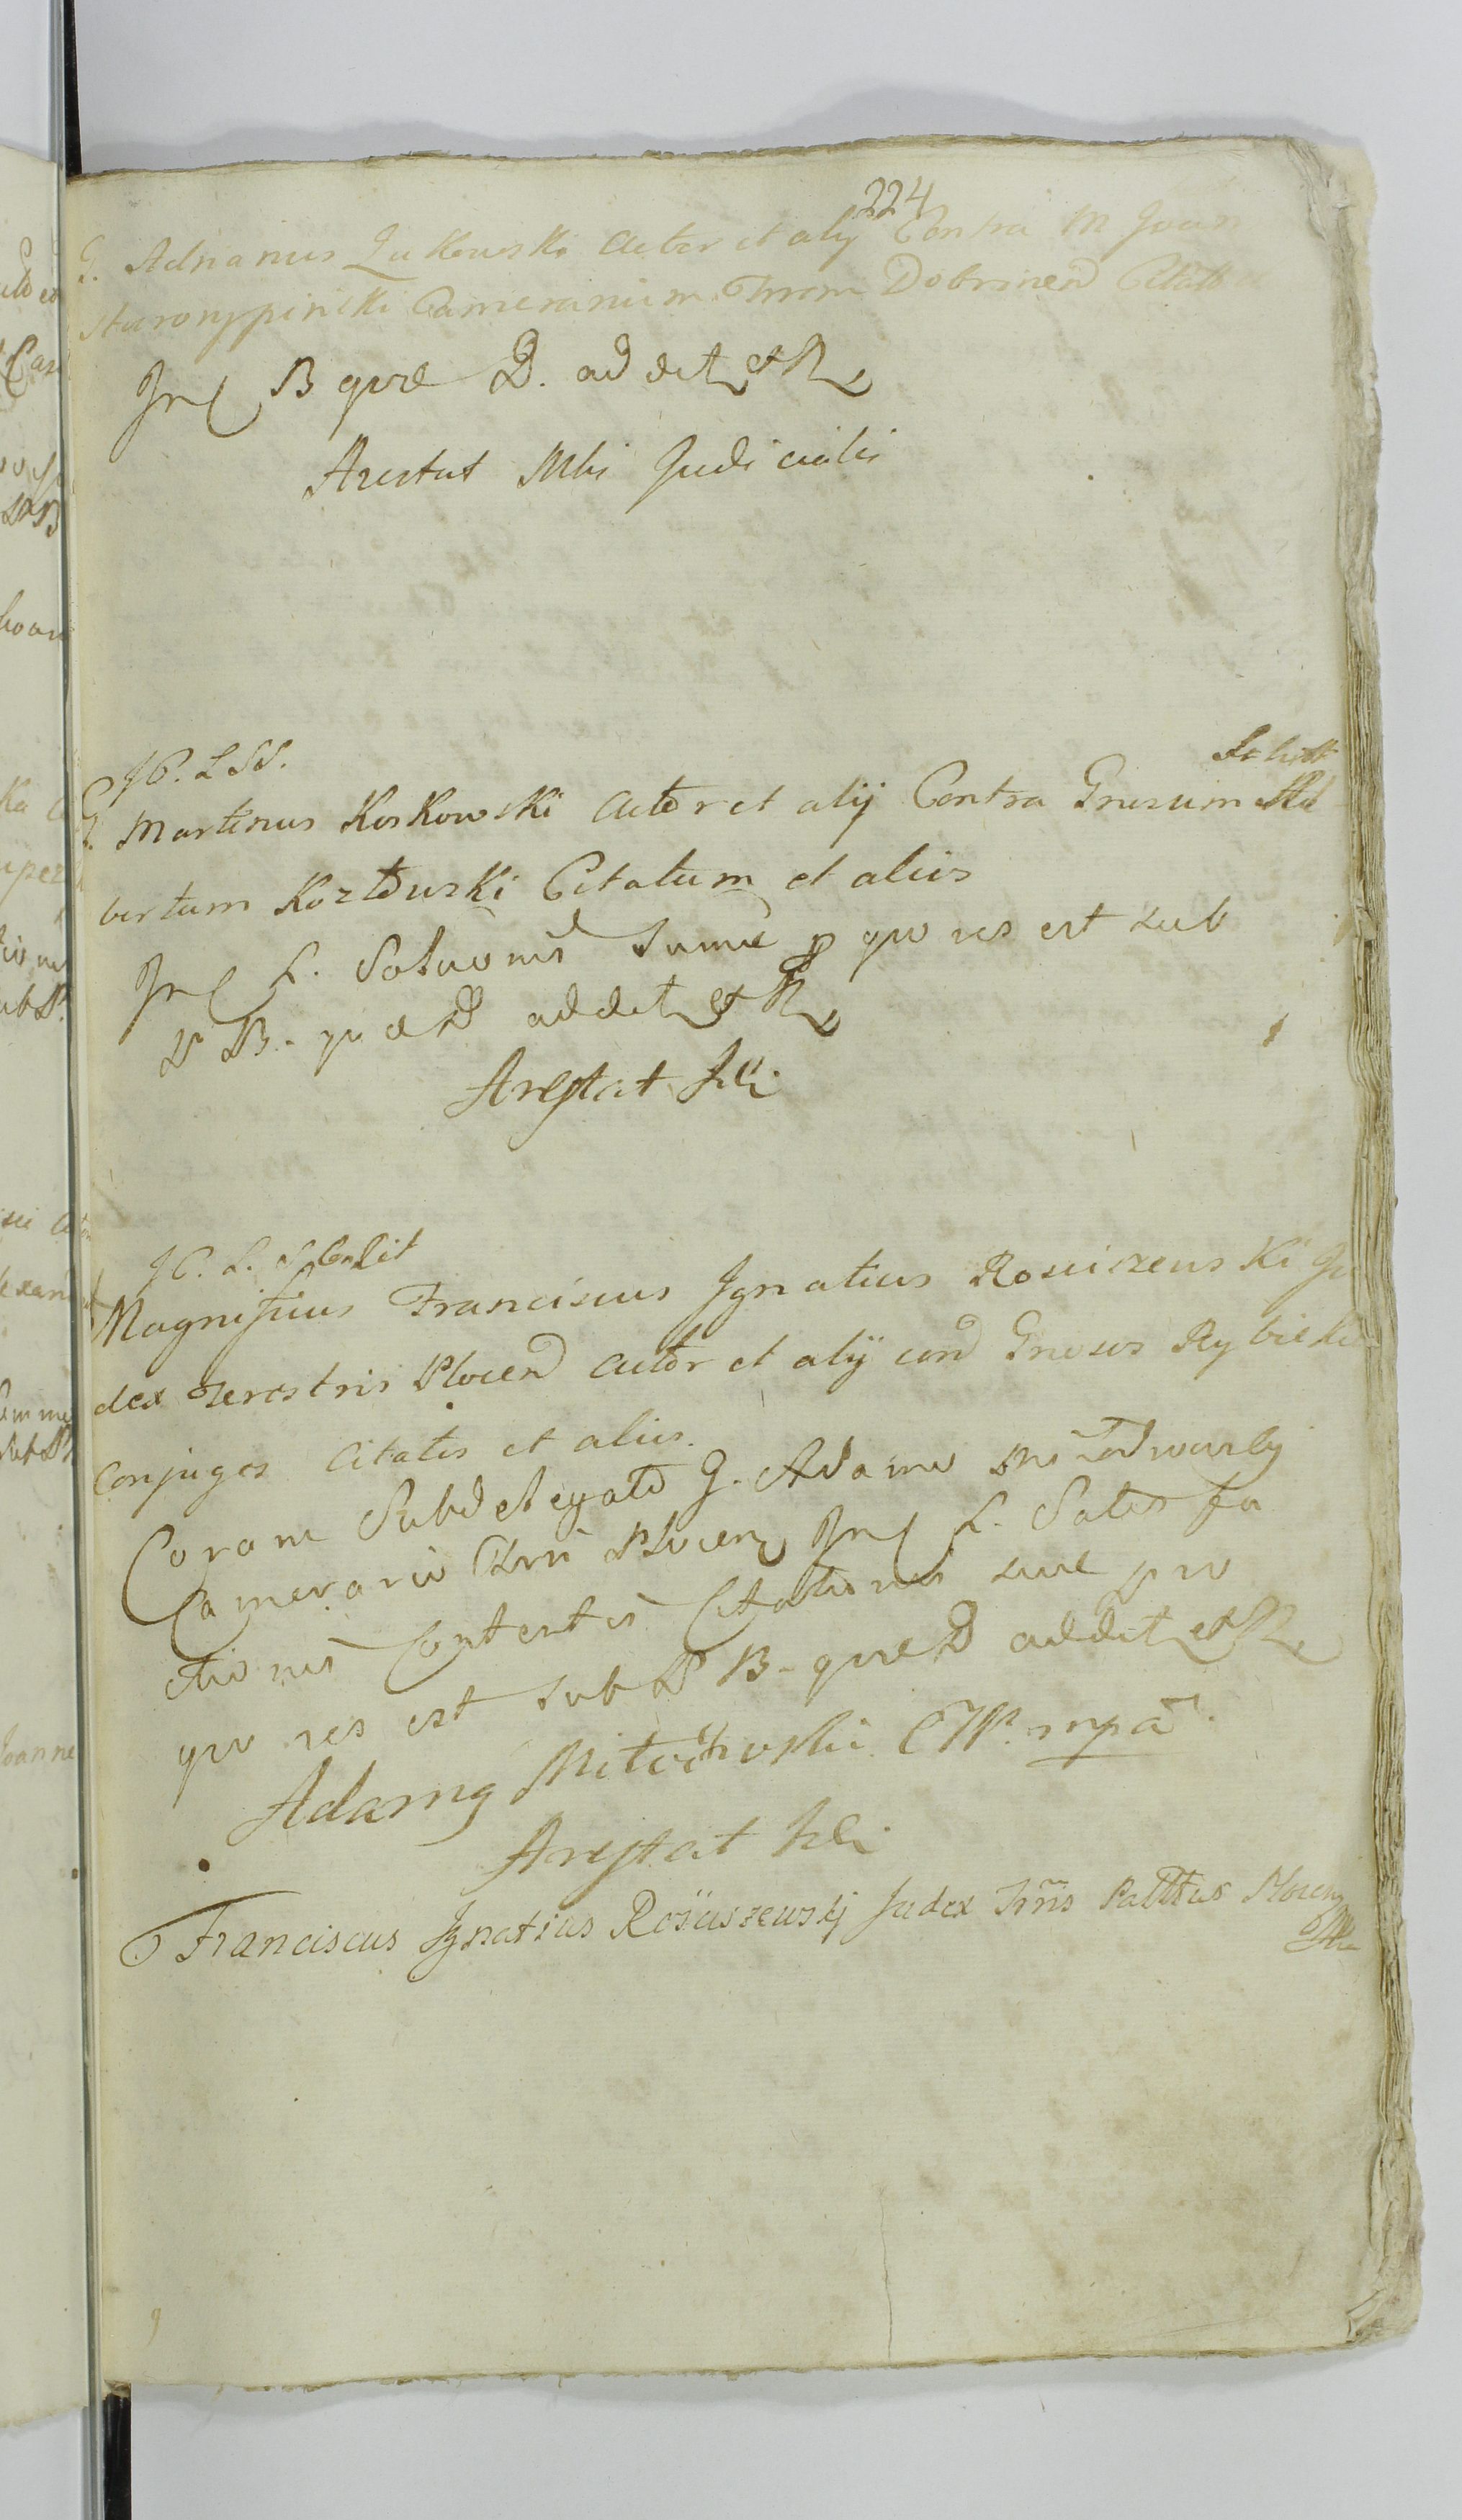 224
G. Adrianus Lukowski Actor et alij Contra M Joan
Starorypinski Camerarium Trrem Dobrinen Citatu
In B que D. addet et R
Arestat Mbi Judicialis
JP. L SS.
Solvit
G. Martinus Koskowski Actor et alij Contra Gnosum Ad
bertum Kozłowski Citatum et alios
In L. Soluonis Sume p quo res est sub
P B. que D addet et R
Arestat
JP. L. S Condit
Magnificus Franciscus Ignatius Rosciszewski Ju
dex Terestris Plocen Actor et alij con Gnosos Rybicki
Conjuges Citatos et alios.
Coram Subdelegato G. Adamo
Camerario Plocen In L. Satis fa
ctionis Contentis Citationis sue pro
quo res est sub P B. que D addet et R
Adamg Mitochoski C P. mpa
Arestat
Franciscus Ignatius Rosciszewskj Judex Trris Pallttus Plocen